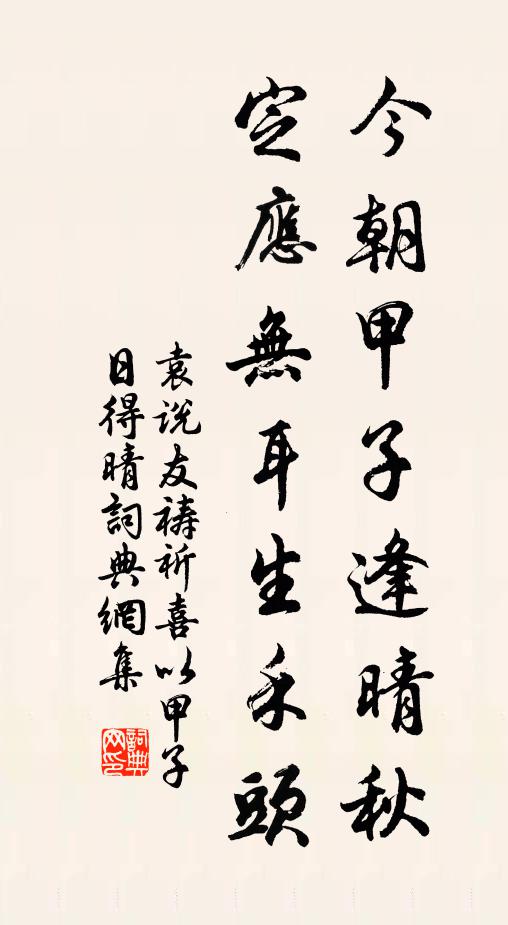 今朝甲子逢晴秋
定應無耳生禾頭
袁說友禱祈喜以甲子
日得晴詞典網集
詞典
网印